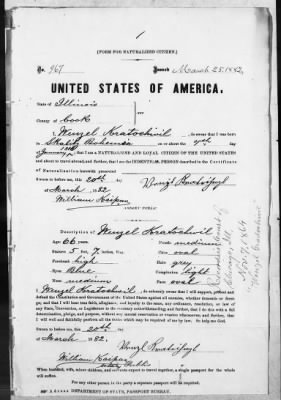 [FORM FOR NATURALIZED CITIZEN.]
No. 967 Issued March 25, 1882
UNITED STATES OF AMERICA.
State of Illinois
County of Cook
I, Wenzel Kratochvil, do swear that I was born
in Bohemia on or about the 7th day
January, that I am a NATURALIZED AND LOYAL CITIZEN OF THE UNITED STATES
and about to travel abroad; and further, that I am the IDENTICAL PERSON described in the Certificate
of Naturalization herewith presented
Sworn to before me, this 20th day
of March 1882
William Kaspar
NOTARY PUBLIC
Description of Wenzel Kratochvil
Age: 66 Nose: medium
Stature: 5 feet, 7 Mouth:
Forehead: high Hair: grey
Eyes: Blue Complexion: light
medium Face: oval
I, Wenzel Kratochvil, do solemnly swear that I will support, protect and
defend the Constitution and Government of the United States against all enemies, whether domestic or foreign,
and that I will bear true faith, allegiance, and loyalty to the same, any ordinance, resolution, or law
of any State, Convention, or Legislature to the contrary notwithstanding; and further, that I do this with a full
determination, pledge, and purpose, without any mental reservation or evasion whatsoever; and further, that
I will well and faithfully perform all the duties which may be required of me by law. So help me God.
Sworn to before me, this 20th day
of March 1882.
William Kaspar
When husband, wife, minor children, and servants expect to travel together, a single passport for the whole
will suffice.
For any other person in the party a separate passport will be required.
DEPARTMENT OF STATE, PASSPORT BUREAU.